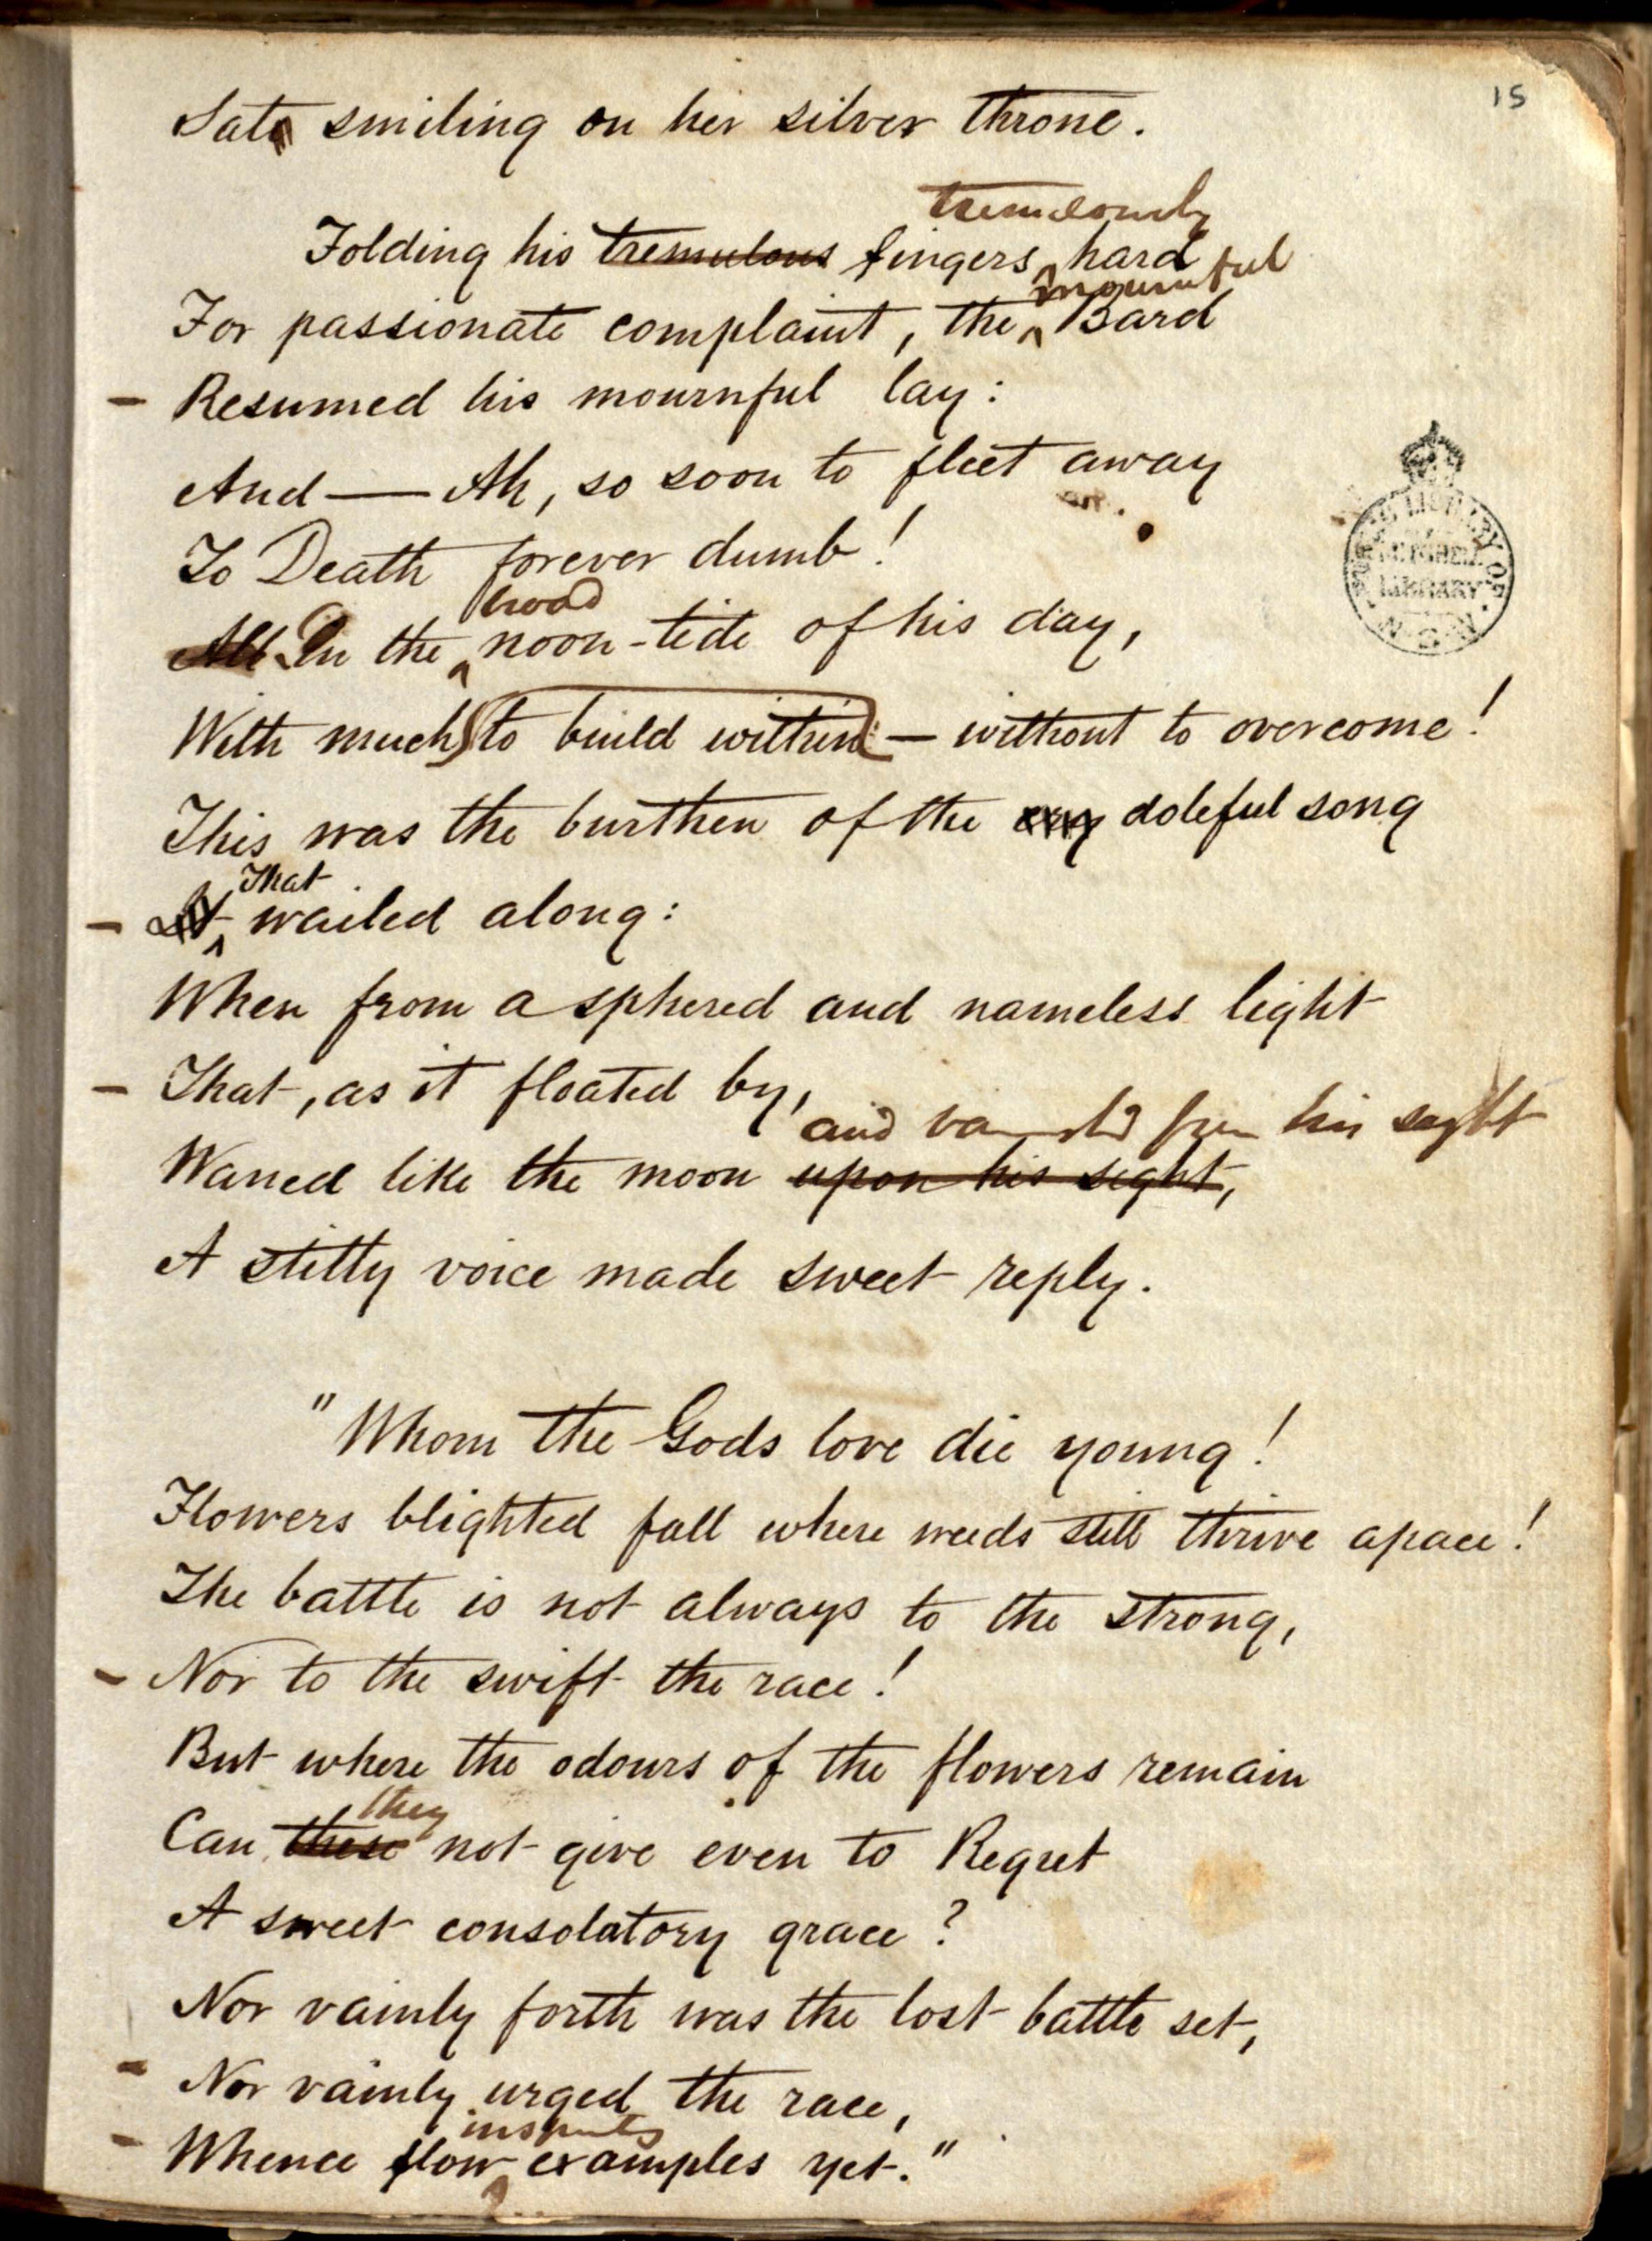 15
Sate smiling on her silver throne.
tremulously
Folding his tremulous fingers hard
mournful
For passionate complaint, the Bard
– Resumed his mournful lay:
And — Ah, so soon to fleet away
To Death forever dumb!
broad
All In the noon-tide of his day,
With much to build within — without to overcome!
This was the burthen of the doleful song
That
– It wailed along:
When from a sphered and nameless light
– That, as it floated by,
and vanished from his sight
Waned like the moon upon his sight,
A stilly voice made sweet reply.
"Whom the Gods love die young!
Flowers blighted fall where weeds still thrive apace!
The battle is not always to the strong,
– Nor to the swift the race!
But where the odours of the flowers remain
they
Can these not give even to Regret
A sweet consolatory grace?
Nor vainly forth was the lost battle set,
– Nor vainly urged the race,
– Whence flow examples yet."
PUBLIC LIBRARY OF
MITCHELL
LIBRARY
N.S.W.